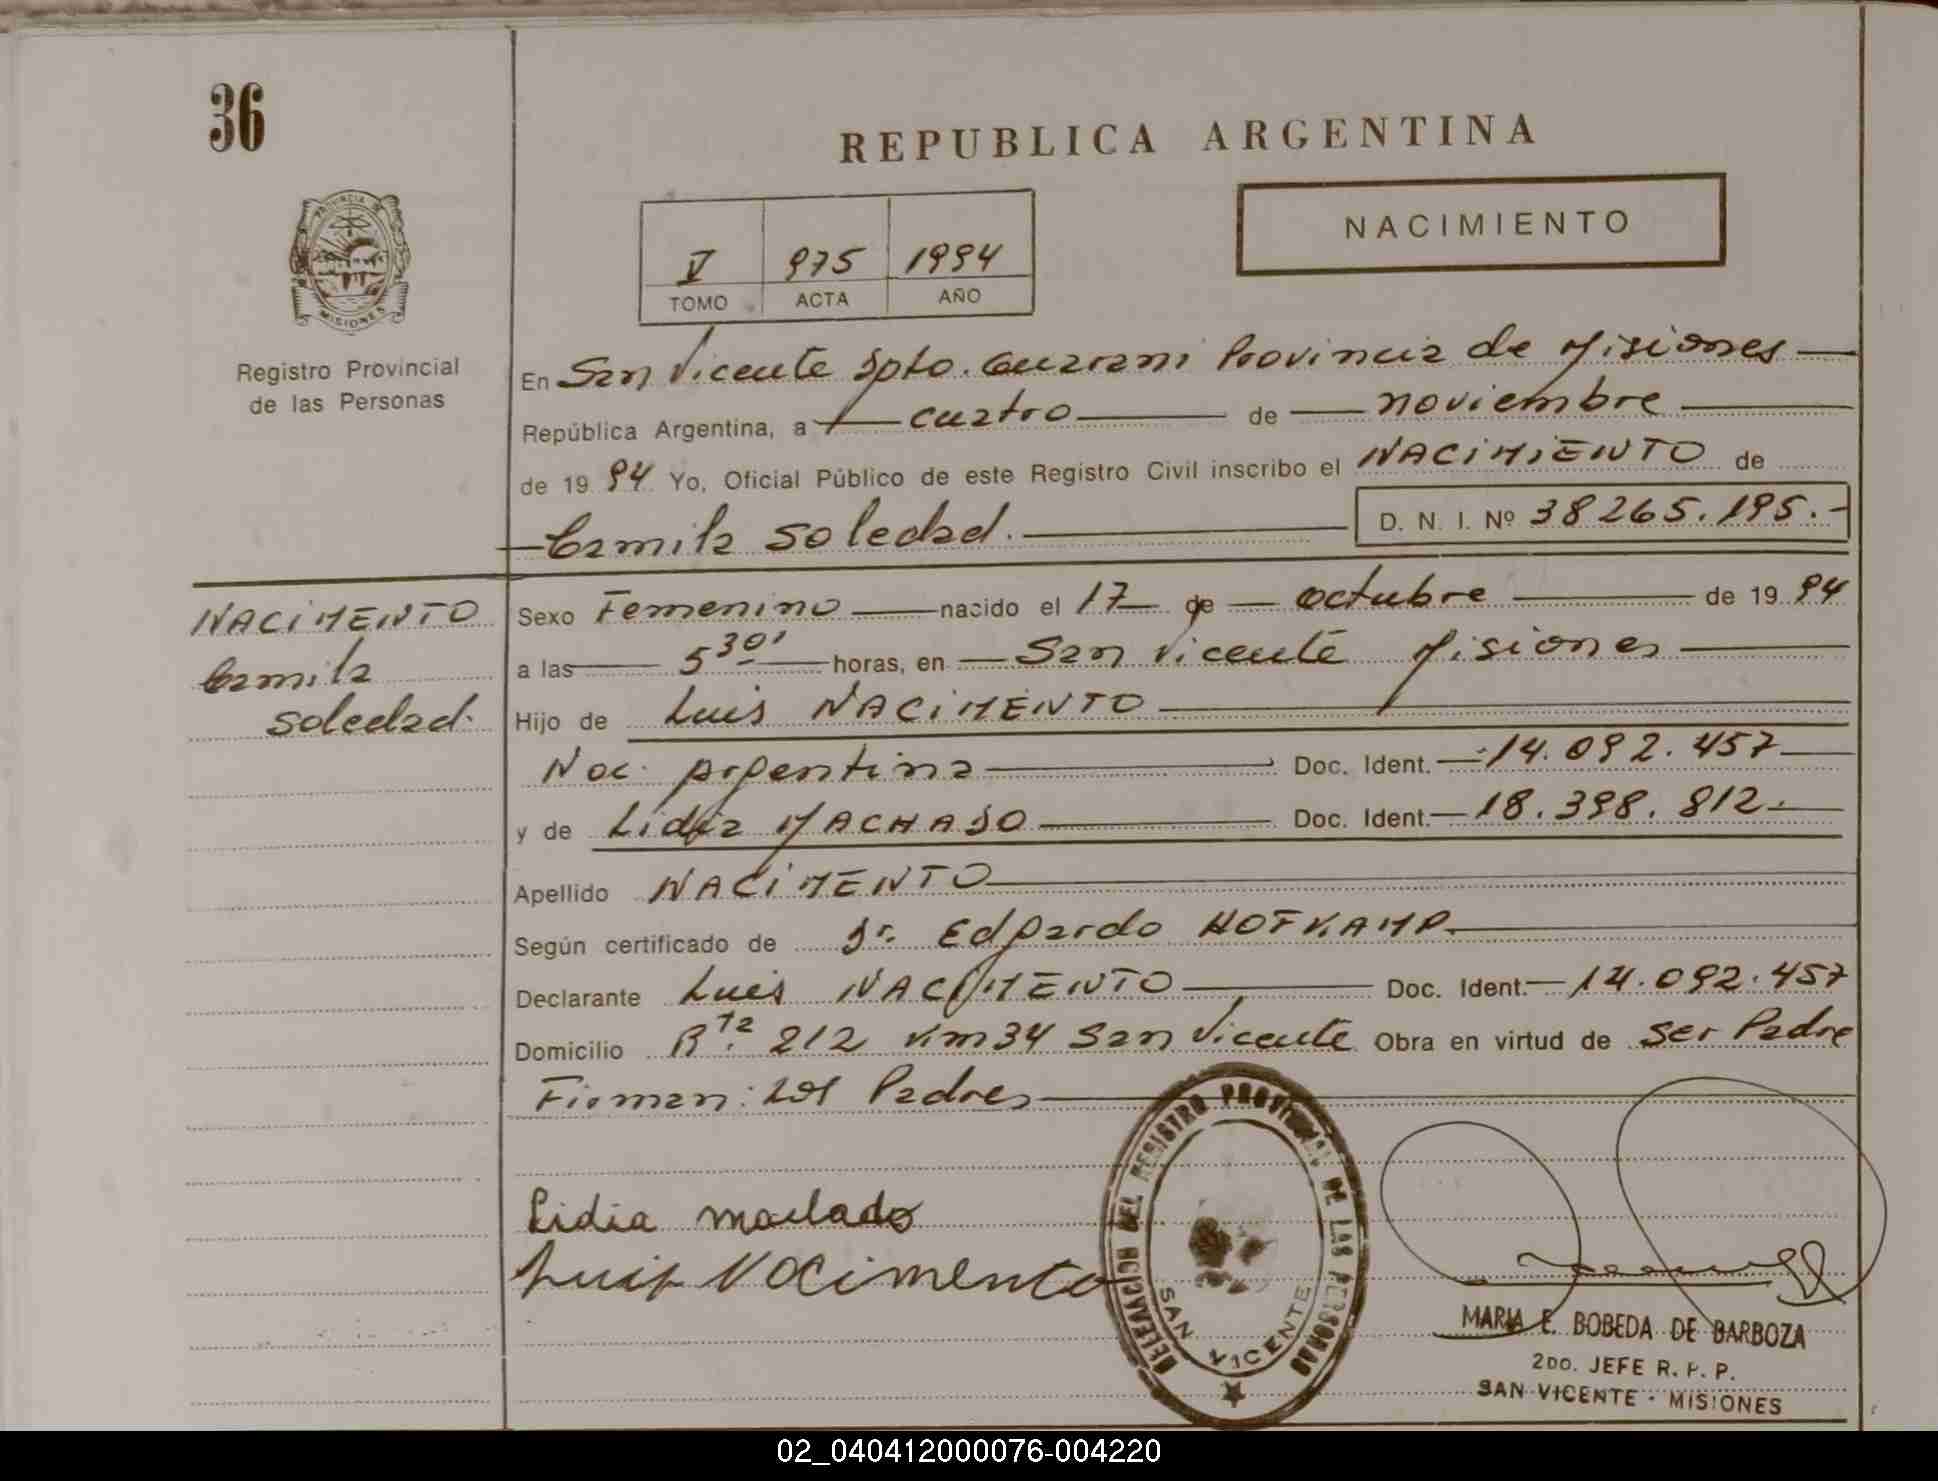 36
REPUBLICA ARGENTINA
NACIMIENTO
V 975 1994
TOMO ACTA AÑO
PROVINCIA DE
MISIONES
Registro Provincial
de las Personas
En San Vicente Dpto. Guarani Provincia de Misiones
República Argentina, a cuatro de noviembre
de 19 94 Yo, Oficial Público de este Registro Civil inscribo el NACIMIENTO de
Camila Soledad. D. N. I. Nº 38265.195.-
NACIMENTO
Camila
Soledad.
Sexo Femenino nacido el 17 de octubre de 19 94
a las 5 30' horas, en San Vicente Misiones
Hijo de Luis NACIMENTO
Nac. Argentina Doc. Ident. 14.092.457
y de Lidia MACHADO Doc. Ident. 18.398.812.
Apellido NACIMENTO
Según certificado de Dr. Edgardo HOFKAMP.
Declarante Luis NACIMENTO Doc. Ident. 14.092.457
Domicilio Rta. 212 Km 34 San Vicente Obra en virtud de ser Padre
Firman: los Padres
Lidia machado
Luis Nacimento
DELEGACION DEL REGISTRO PROVINCIAL DE LAS PERSONAS
SAN VICENTE
MARIA E. BOBEDA DE BARBOZA
2DO. JEFE R. P. P.
SAN VICENTE - MISIONES
02_040412000076-004220